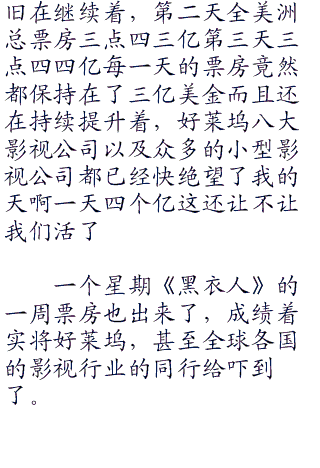 旧在继续着，第二天全美洲
总票房三点四三亿第三天三
点四四亿每一天的票房竟然
都保持在了三亿美金而且还
在持续提升着，好莱坞八大
影视公司以及众多的小型影
视公司都已经快绝望了我的
天啊一天四个亿这还让不让
我们活了
一个星期《黑衣人》的
一周票房也出来了，成绩着
实将好莱坞，甚至全球各国
的影视行业的同行给吓到
了。